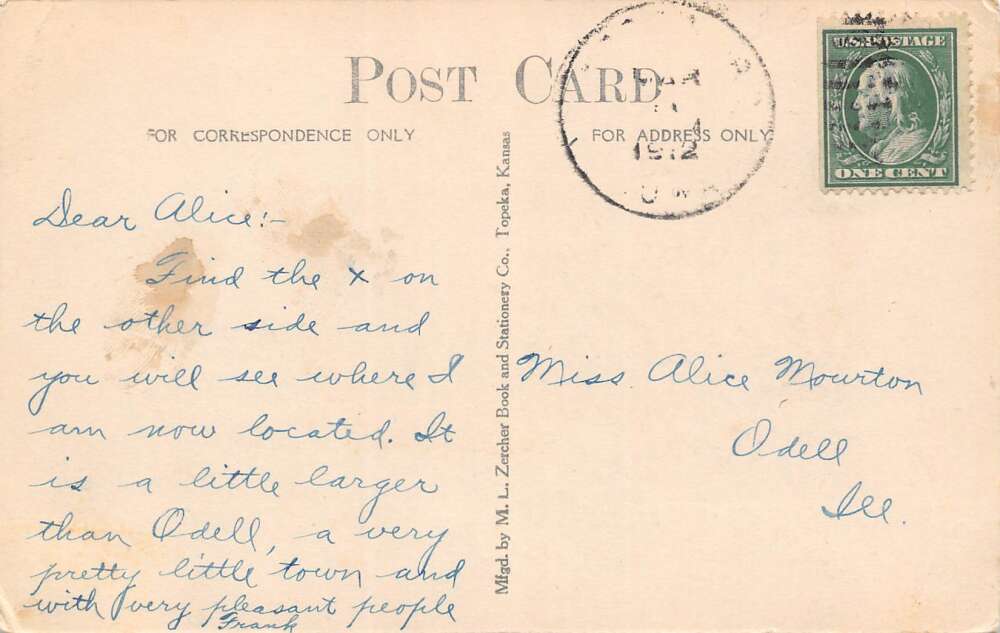 POST CARD
FOR CORRESPONDENCE ONLY
FOR ADDRESS ONLY
1912
U.S. POSTAGE
ONE CENT
Dear Alice:-
Find the x on
the other side and
you will see where I
am now located. It
is a little larger
than Odell, a very
pretty little town and
with very pleasant people
Frank
Mfgd. by M. L. Zercher Book and Stationery Co., Topeka, Kansas
Miss. Alice Mourton
Odell
Ill.